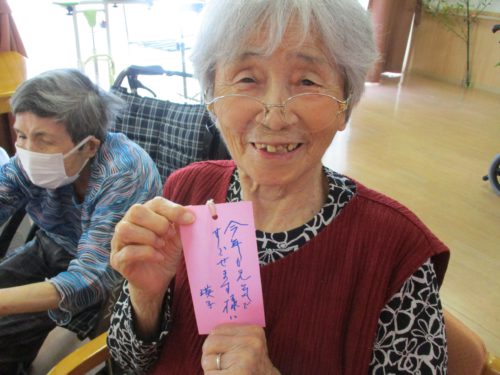 今年も元気で
すごせます様に
瑛子